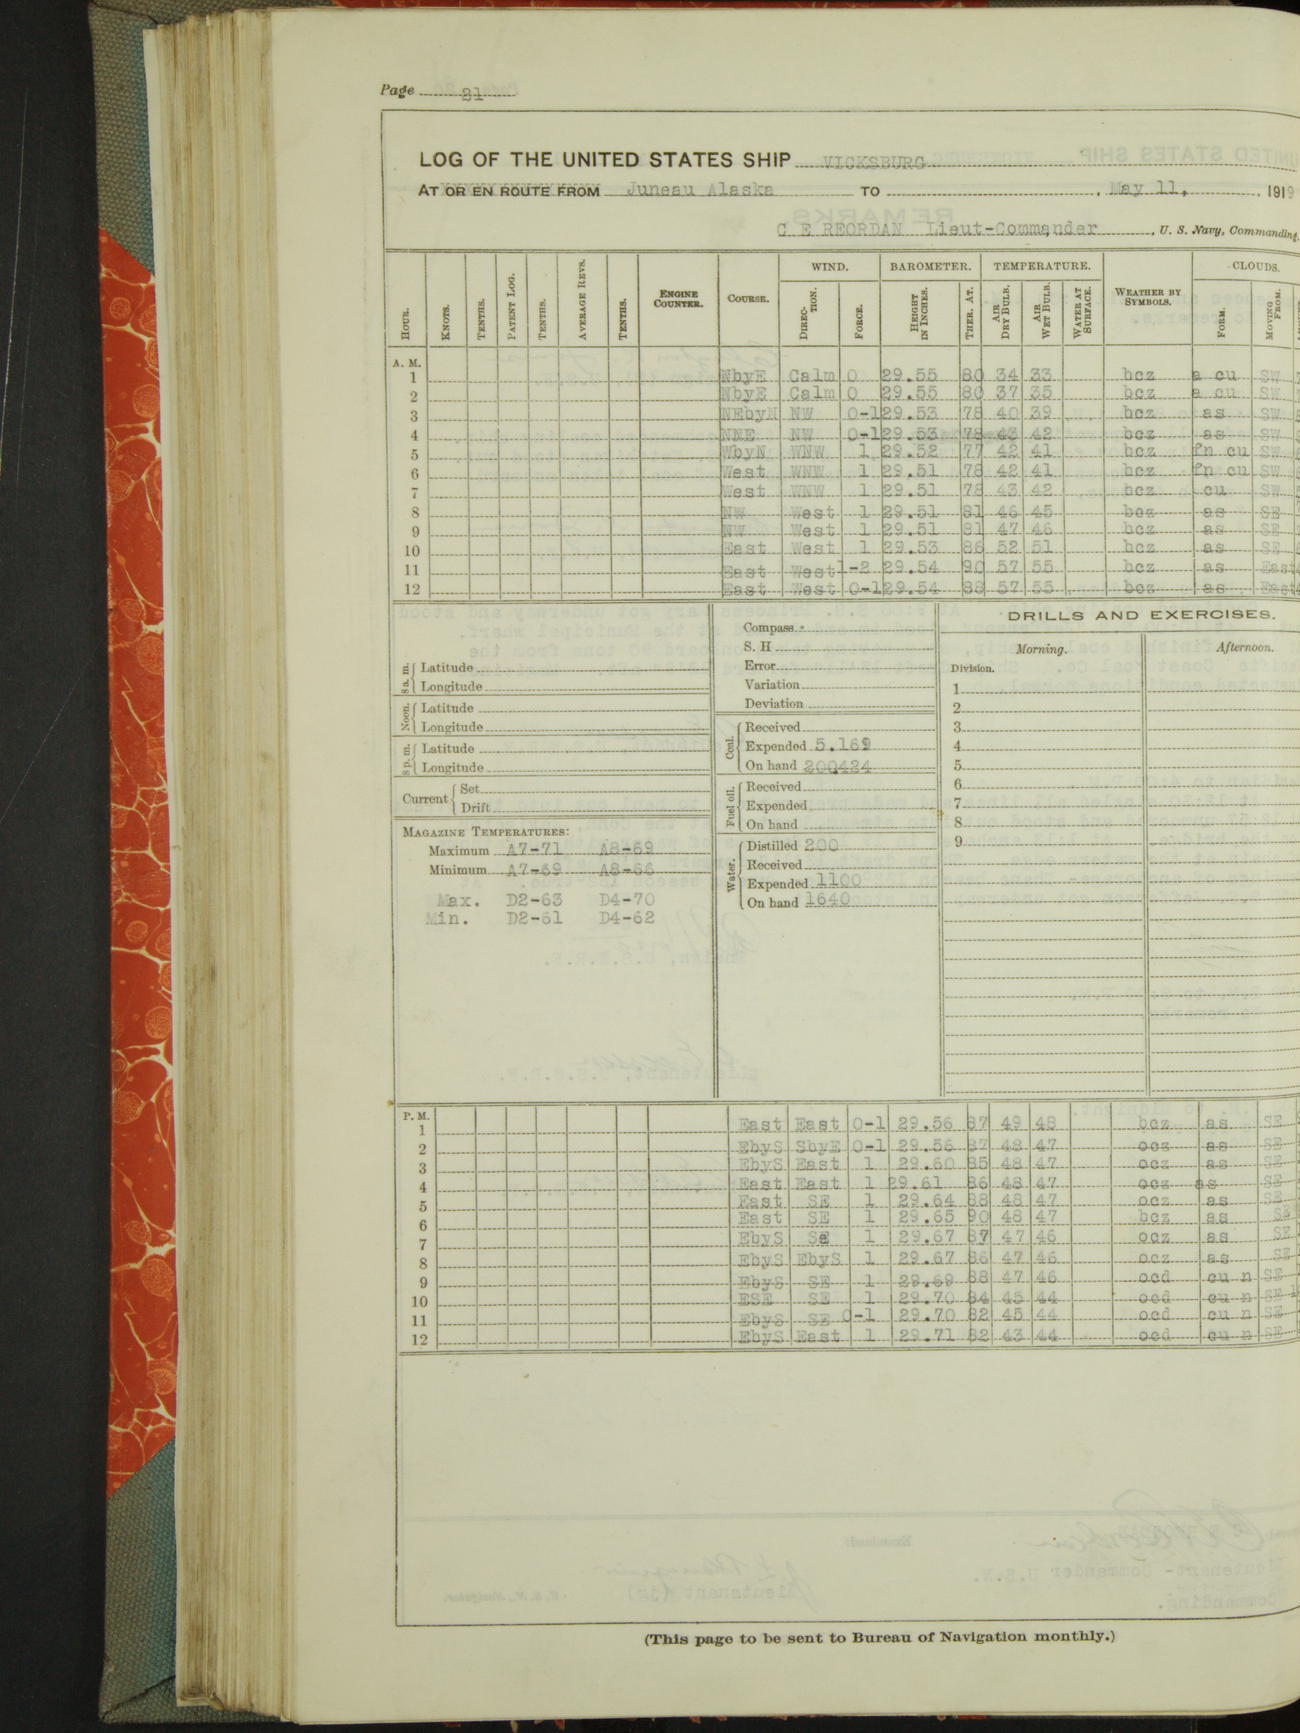 Page 21
LOG OF THE UNITED STATES SHIP VICKSBURG
AT OR EN ROUTE FROM Juneau Alaska TO , May 11, 1919
C E REORDAN Lieut-Commander , U. S. Navy, Commanding.
WIND. BAROMETER. TEMPERATURE. CLOUDS.
HOUR. KNOTS. TENTHS. PATENT LOG. TENTHS. AVERAGE REVS. TENTHS. ENGINE COUNTER. COURSE. DIRECTION. FORCE. HEIGHT IN INCHES. THER. AT. AIR DRY BULB. AIR WET BULB. WATER AT SURFACE. WEATHER BY SYMBOLS. FORM. MOVING FROM.
A. M.
1 NbyE Calm 0 29.55 80 34 33 bcz a cu SW
2 NbyE Calm 0 29.55 80 37 35 bcz a cu SW
3 NEbyN NW 0-1 29.53 78 40 39 bcz as SW
4 NNE NW 0-1 29.53 78 43 42 bcz as SW
5 WbyN WNW 1 29.52 77 42 41 bcz fn cu SW
6 West WNW 1 29.51 78 42 41 bcz fn cu SW
7 West WNW 1 29.51 78 43 42 bcz cu SW
8 NW West 1 29.51 81 46 45 bcz as SE
9 NW West 1 29.51 81 47 46 bcz as SE
10 East West 1 29.53 86 52 51 bcz as SE
11 East West 1-2 29.54 90 57 55 bcz as East
12 East West 0-1 29.54 88 57 55 bcz as East
8 a. m. Latitude
Longitude
Noon. Latitude
Longitude
8 p. m. Latitude
Longitude
Current Set
Drift
MAGAZINE TEMPERATURES:
Maximum A7-71 A8-69
Minimum A7-69 A8-66
Max. D2-63 D4-70
Min. D2-61 D4-62
Compass
S. H
Error
Variation
Deviation
Coal. Received
Expended 5.169
On hand 200424
Fuel oil. Received
Expended
On hand
Water. Distilled 200
Received
Expended 1100
On hand 1640
DRILLS AND EXERCISES.
Morning. Afternoon.
Division.
1
2
3
4
5
6
7
8
9
P. M.
1 East East 0-1 29.56 87 49 48 bcz as SE
2 EbyS SbyE 0-1 29.56 87 48 47 ocz as SE
3 EbyS East 1 29.60 85 48 47 ocz as SE
4 East East 1 29.61 86 48 47 ocz as SE
5 East SE 1 29.64 88 48 47 ocz as SE
6 East SE 1 29.65 90 48 47 bcz as SE
7 EbyS Se 1 29.67 87 47 46 ocz as SE
8 EbyS EbyS 1 29.67 86 47 46 ocz as SE
9 EbyS SE 1 29.69 88 47 46 ocd cu n SE
10 ESE SE 1 29.70 84 45 44 ocd cu n SE
11 EbyS SE 0-1 29.70 82 45 44 ocd cu n SE
12 EbyS East 1 29.71 82 43 44 ocd cu n SE
(This page to be sent to Bureau of Navigation monthly.)